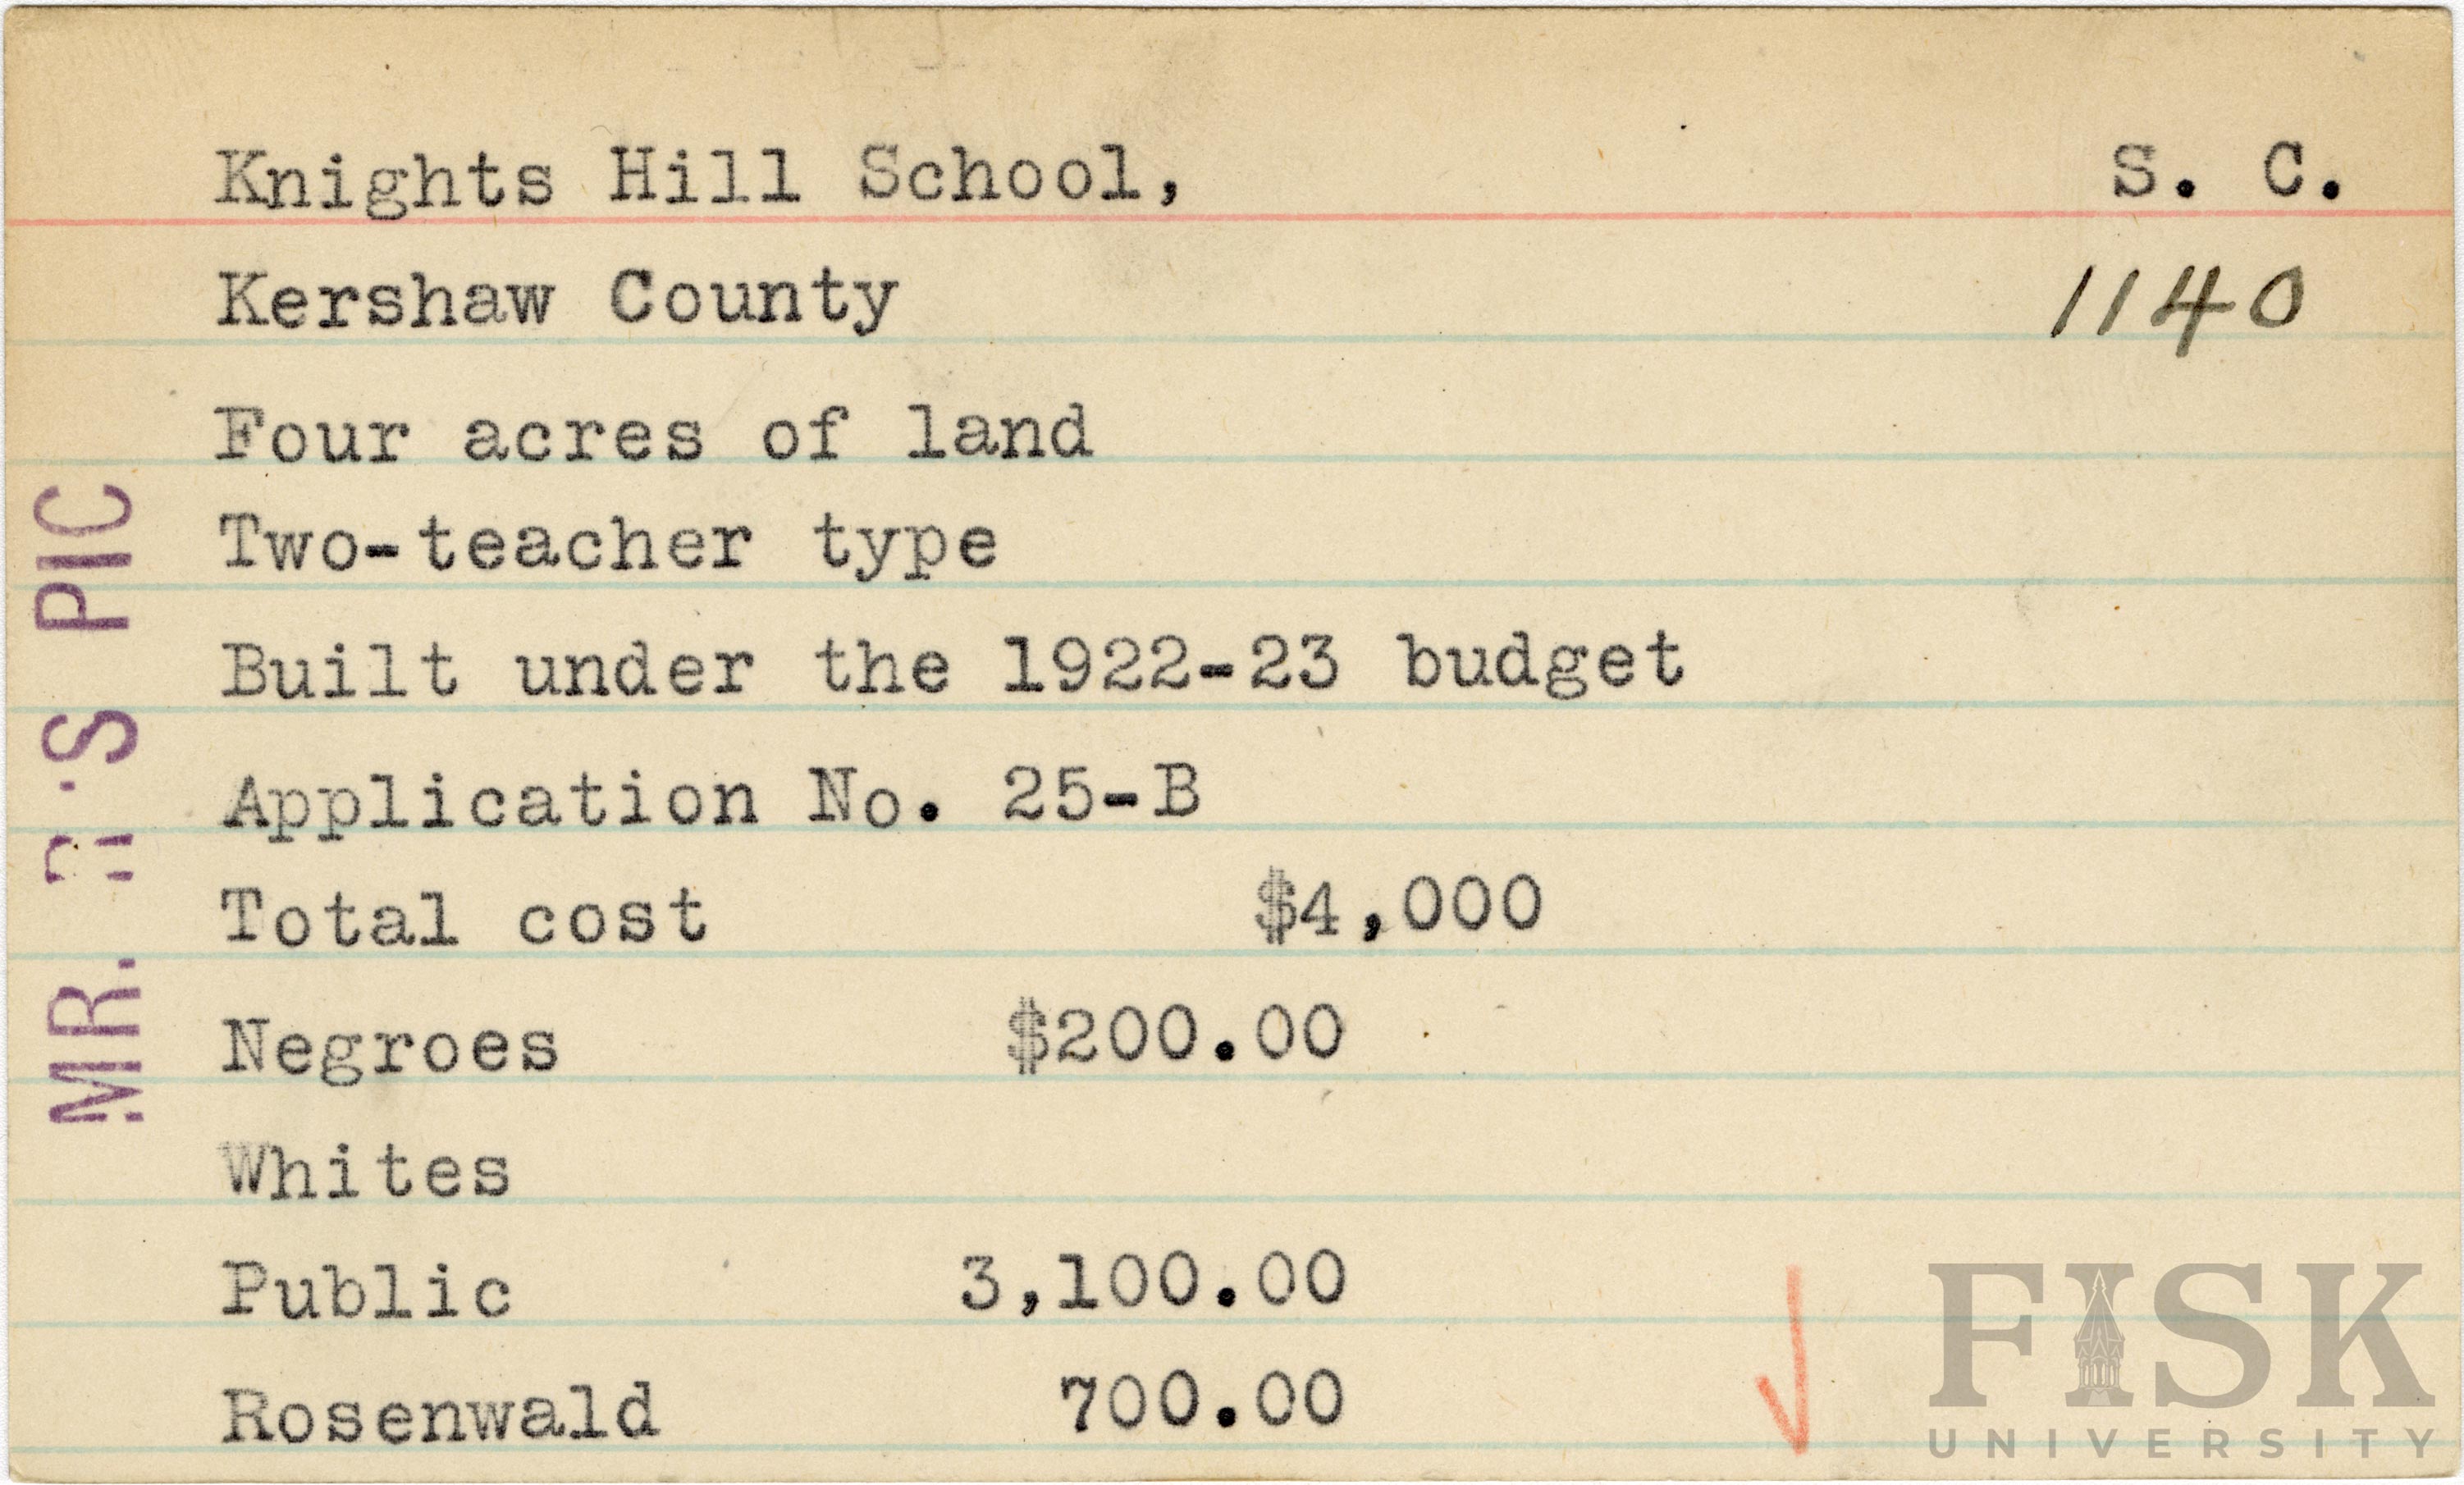 Knights Hill School, S. C.
Kershaw County 1140
Four acres of land
Two-teacher type
Built under the 1922-23 budget
Application No. 25-B
Total cost $4,000
Negroes $200.00
Whites
Public 3,100.00
Rosenwald 700.00
MR. 'S PIC
FISK
UNIVERSITY